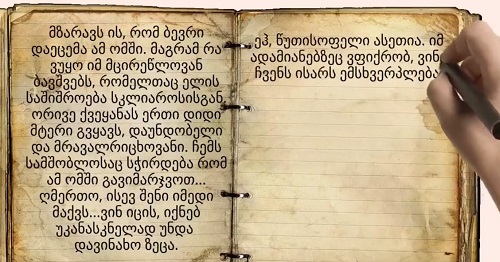 მზარავს ის, რომ ბევრი
დაეცემა ამ ომში. მაგრამ რა
ვუყო იმ მცირეწლოვან
ბავშვებს, რომელთაც ელის
საშიშროება სკლიაროსისგან.
ორივე ქვეყანას ერთი დიდი
მტერი გვყავს, დაუნდობელი
და მრავალრიცხოვანი. ჩემს
სამშობლოსაც სჭირდება რომ
ამ ომში გავიმარჯვოთ...
ღმერთო, ისევ შენი იმედი
მაქვს...ვინ იცის, იქნებ
უკანასკნელად უნდა
დავინახო ზეცა.
ეჰ, წუთისოფელი ასეთია. იმ
ადამიანებზეც ვფიქრობ, ვინც
ჩვენს ისარს ემსხვერპლება